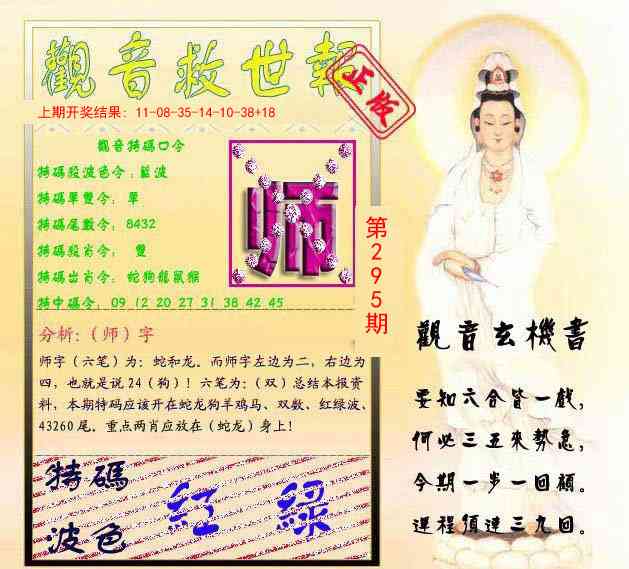 觀音救世報
正版
上期开奖结果：11-08-35-14-10-38+18
觀音特碼口令
特碼段波色令：藍波
特碼單雙令：單
特碼尾數令：8432
特碼段肖令： 雙
特碼出肖令：蛇狗龍鼠猴
特中碼令：09 12 20 27 31 38 42 45
师
第295期
分析：（师）字
师字（六笔）为：蛇和龙。而师字左边为二，右边为
四，也就是说24（狗）！六笔为：（双）总结本报资
料，本期特码应该开在蛇龙狗羊鸡马、双数、红绿波、
43260尾。重点两肖应放在（蛇龙）身上！
特碼
波色
紅 綠
觀音玄機書
要知六合皆一戲，
何必三五來勢急，
今期一步一回頭。
運程須達三九回。